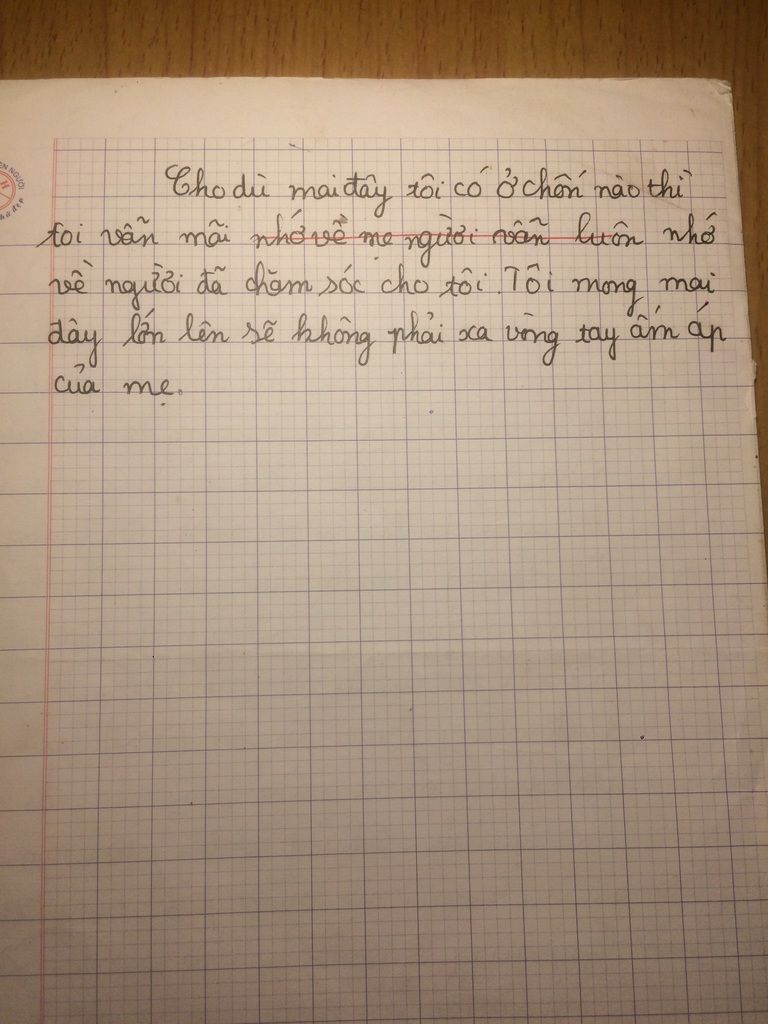 Cho dù mai đây tôi có ở chốn nào thì
toi vẫn mãi nhớ về mẹ người vẫn luôn nhớ
về người đã chăm sóc cho tôi. Tôi mong mai
đây lớn lên sẽ không phải xa vòng tay ấm áp
của mẹ.